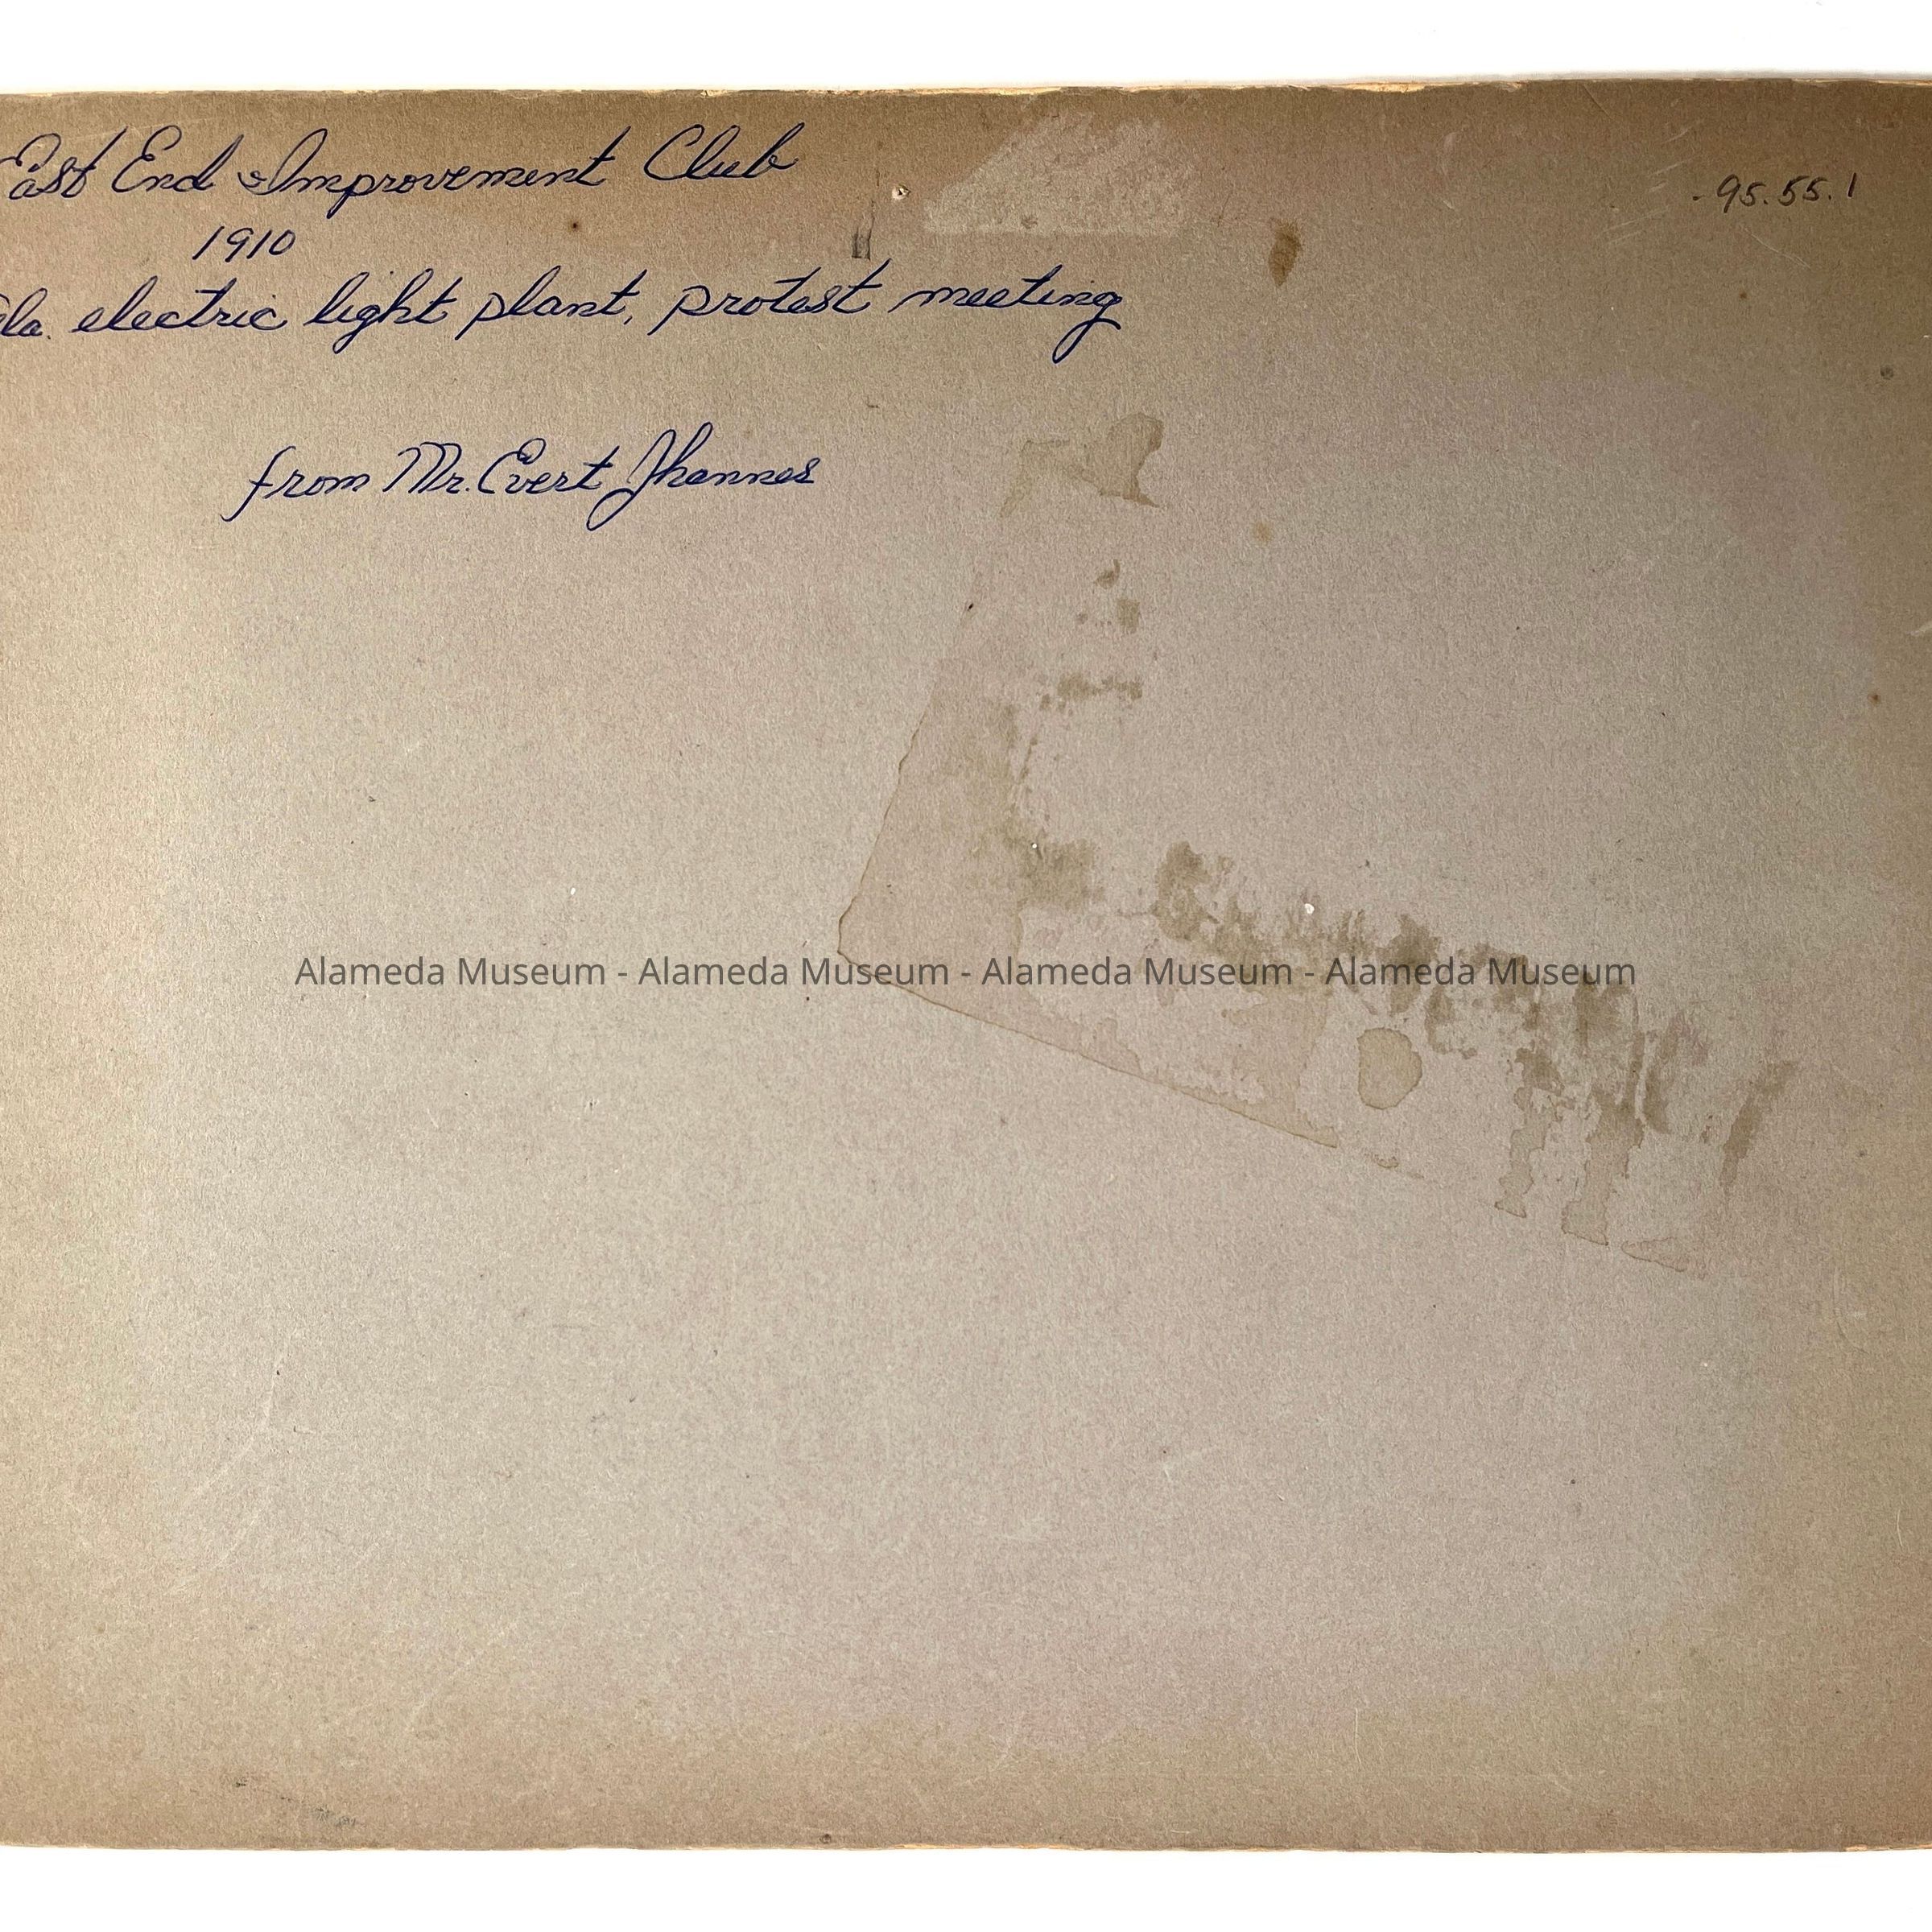 East End Improvement Club
95.55.1
1910
la. electric light plant, protest meeting
from Mr. Evert Jhannes
Alameda Museum - Alameda Museum - Alameda Museum - Alameda Museum